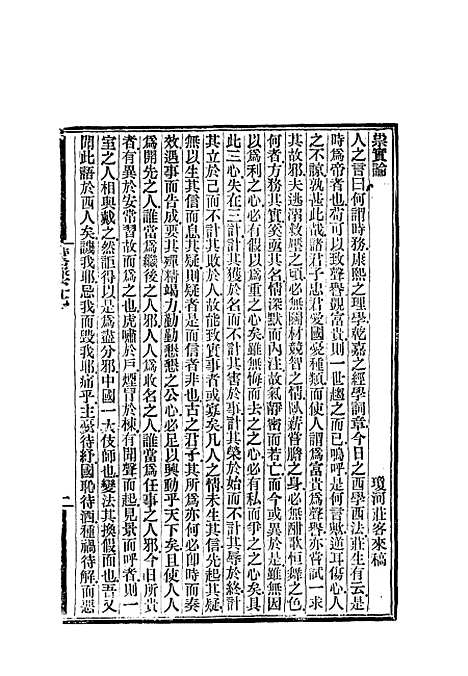 崇實論
瓊河莊客來稿
人之言曰何謂時務康熙之理學乾嘉之經學詞章今日之西學西法莊生有云是
時為帝者也苟可以致聲譽覬富貴則一世趨之而已嗚呼是何言歟道耳傷心人
之不諒孰甚此哉諸君子忠君愛國愛種類而使人謂為富貴為聲譽亦嘗試一求
其故邪夫逃溺救災之頃必無閒材競智之情臥薪嘗膽之身必無酣桓舞之色
何者方務其實奚亟其名情深默而內注故氣靜密而若亡而今或異於是雖無因
以為利之心必有假以為重之心矣雖無悔而去之之心必有私而爭之之心矣具
此三心失在三計計其獲於名而不計其害於事計其榮於始而不計其疑於終計
其立於己而不計其扶於人故能致實事者或寡矣凡人之情未生其信先起其疑
無以生其信而且疑則是非起矣信則成敗
效遇事而告成要其殫精竭力勤勤懇懇之公心必足以興動乎天下矣且使人人
為開先之人誰當為繼後之人邪人人為收名之人誰當為任事之人邪今日所貴
者有異於安常習故而為之也虎嘯於戶煙冒於棟有聞聲而起見景而呼者則一
室之人相與戴之然詎得以是為盡分邪中國一大伎師也變法其換假面也吾又
聞此語於西人矣譏我耶忌我而毀我耶痛乎主憂待紓國恥待洒種禍待解而惡
二